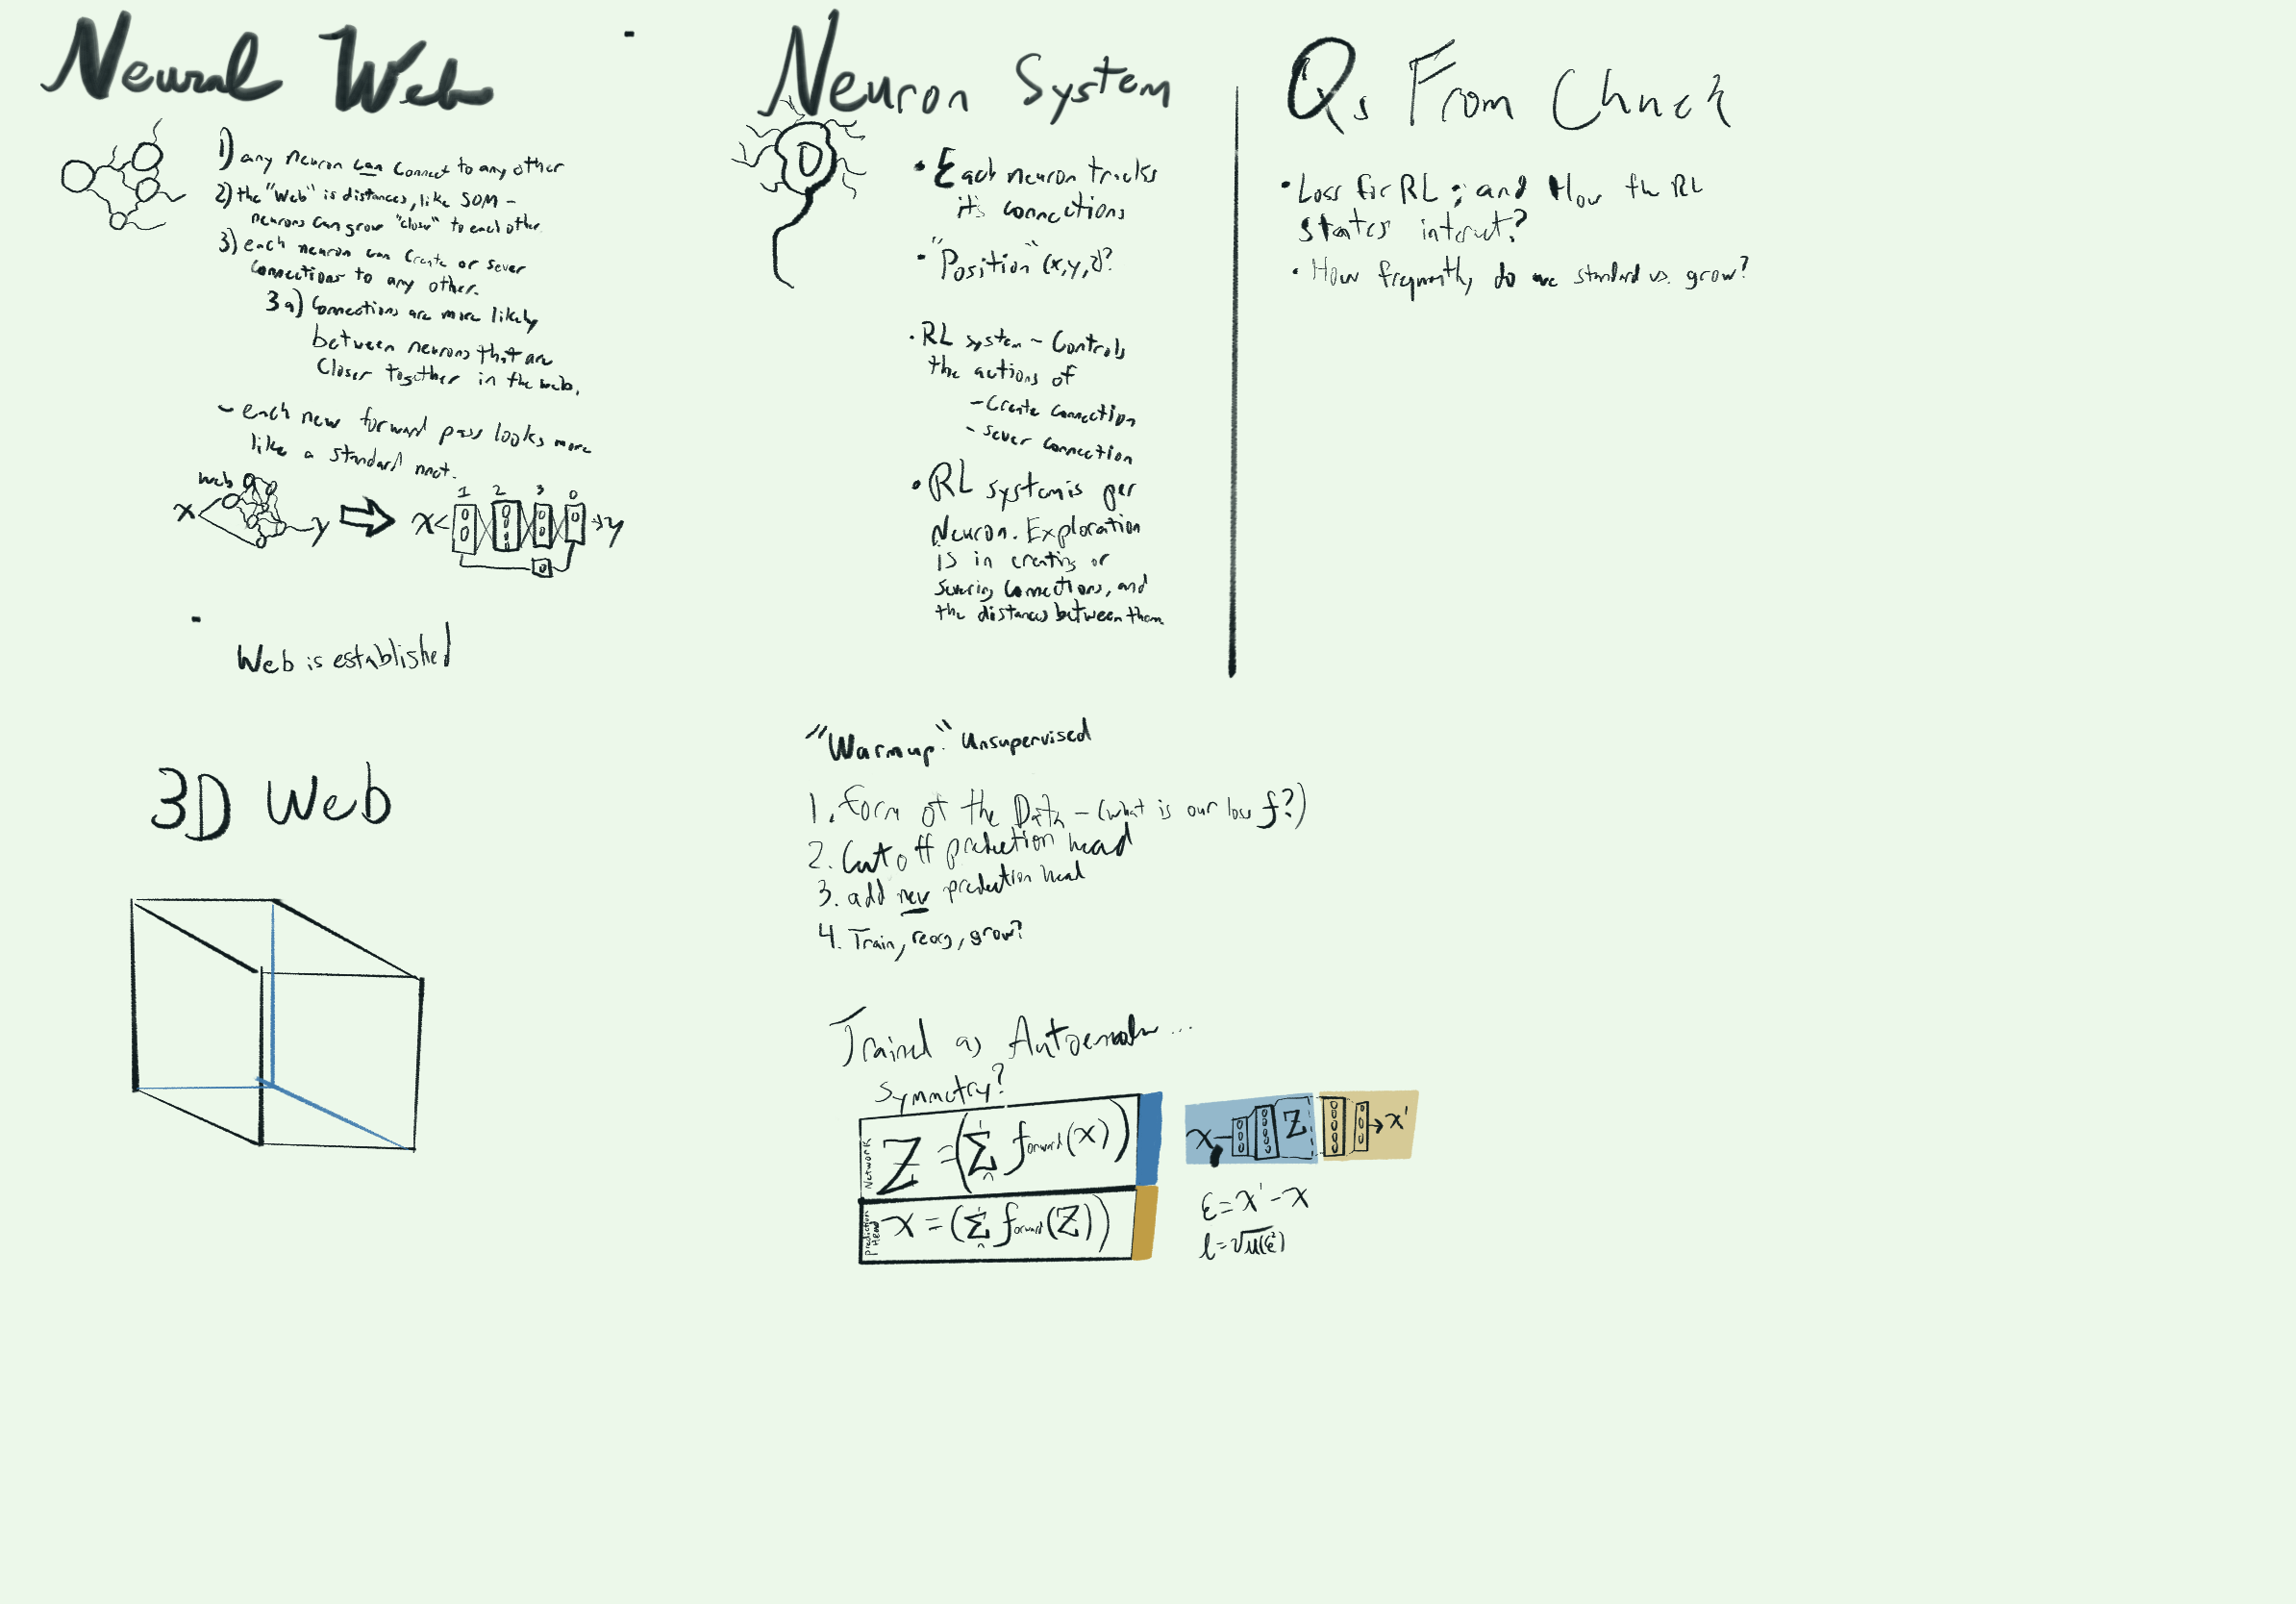 Neural Web
1) any neuron can connect to any other
2) the "web" is distances, like SOM -
neurons can grow "close" to each other.
3) each neuron can create or sever
connections to any other.
3a) Connections are more likely
between neurons that are
closer together in the web.
- each new forward pass looks more
like a standard nnet.
web
1 2 3 0
x y x y
Web is established
3D Web
Neuron System
• Each neuron tracks
its connections
• "Position" (x,y,z)?
• RL system - Controls
the actions of
- Create connection
- Sever connection
• RL system is per
Neuron. Exploration
is in creating or
severing connections, and
the distances between them.
Qs From Chuck
• Loss for RL; and How the RL
states interact?
• How frequently do we standard vs. grow?
"Warmup": Unsupervised
1. Form of the Data - (what is our loss f?)
2. Cut off prediction head
3. add new prediction head
4. Train, reorg, grow?
Trained as Autoencoder...
Symmetry?
Network
Z = (Σ forward(x))
Prediction Head
x = (Σ forward(Z))
x Z x'
ε = x' - x
l = √μ(ε²)